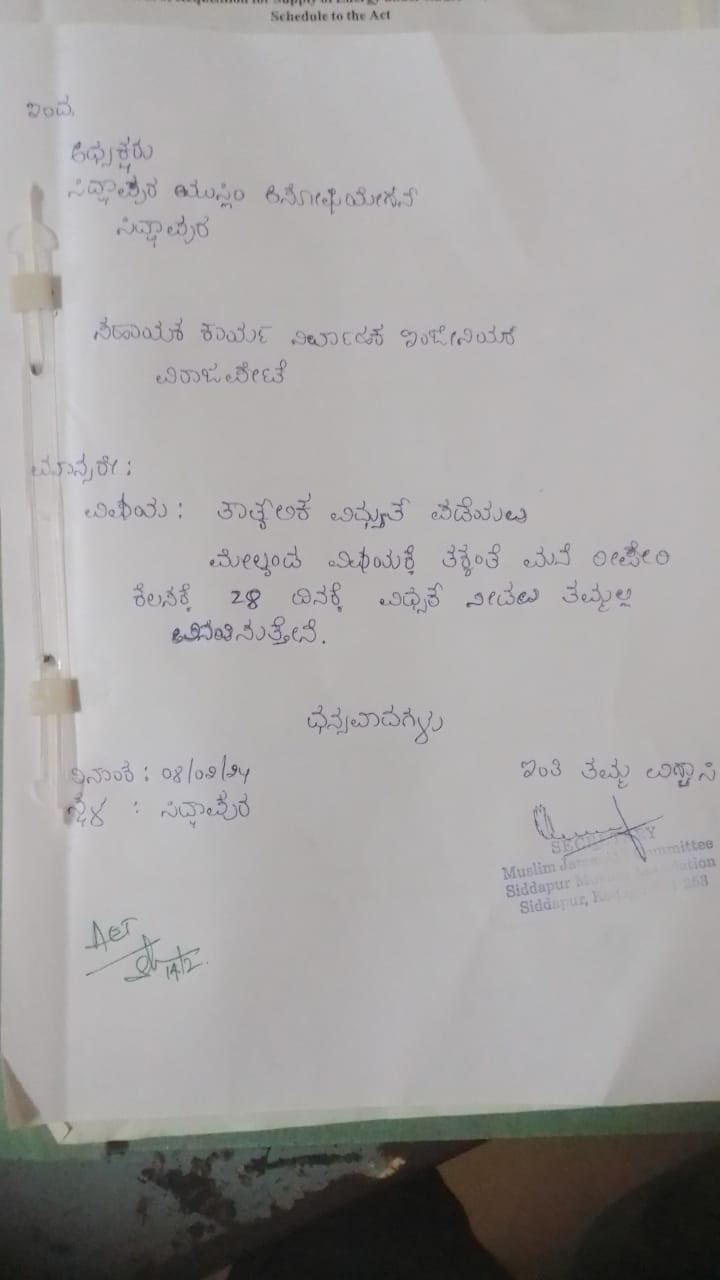 Schedule to the Act
ಇಂದ,
ಅಧ್ಯಕ್ಷರು
ಸಿದ್ಧಾಪುರ ಮುಸ್ಲಿಂ ಅಸೋಷಿಯೇಶನ್
ಸಿದ್ಧಾಪುರ
ಸಹಾಯಕ ಕಾರ್ಯ ನಿರ್ವಾಹಕ ಇಂಜೀನಿಯರ
ವಿರಾಜಪೇಟೆ
ಮಾನ್ಯರೇ :
ವಿಷಯ : ತಾತ್ಕಲಿಕ ವಿದ್ಯುತ್ ಪಡೆಯಲು
ಮೇಲ್ಕಂಡ ವಿಷಯಕ್ಕೆ ತಕ್ಕಂತೆ ಮನೆ ರೀಪೇರಿ
ಕೆಲಸಕ್ಕೆ 28 ದಿನಕ್ಕೆ ವಿದ್ಯುತ್ ನೀಡಲು ತಮ್ಮಲ್ಲಿ
ಧನ್ಯವಾದಗಳು
ದಿನಾಂಕ : 08/02/24
ಇಂತಿ ತಮ್ಮ ವಿಶ್ವಾಸಿ
ಸ್ಥಳ : ಸಿದ್ಧಾಪುರ
SECRETARY
Muslim Committee
Siddapur
Siddapur,
AET
14/2